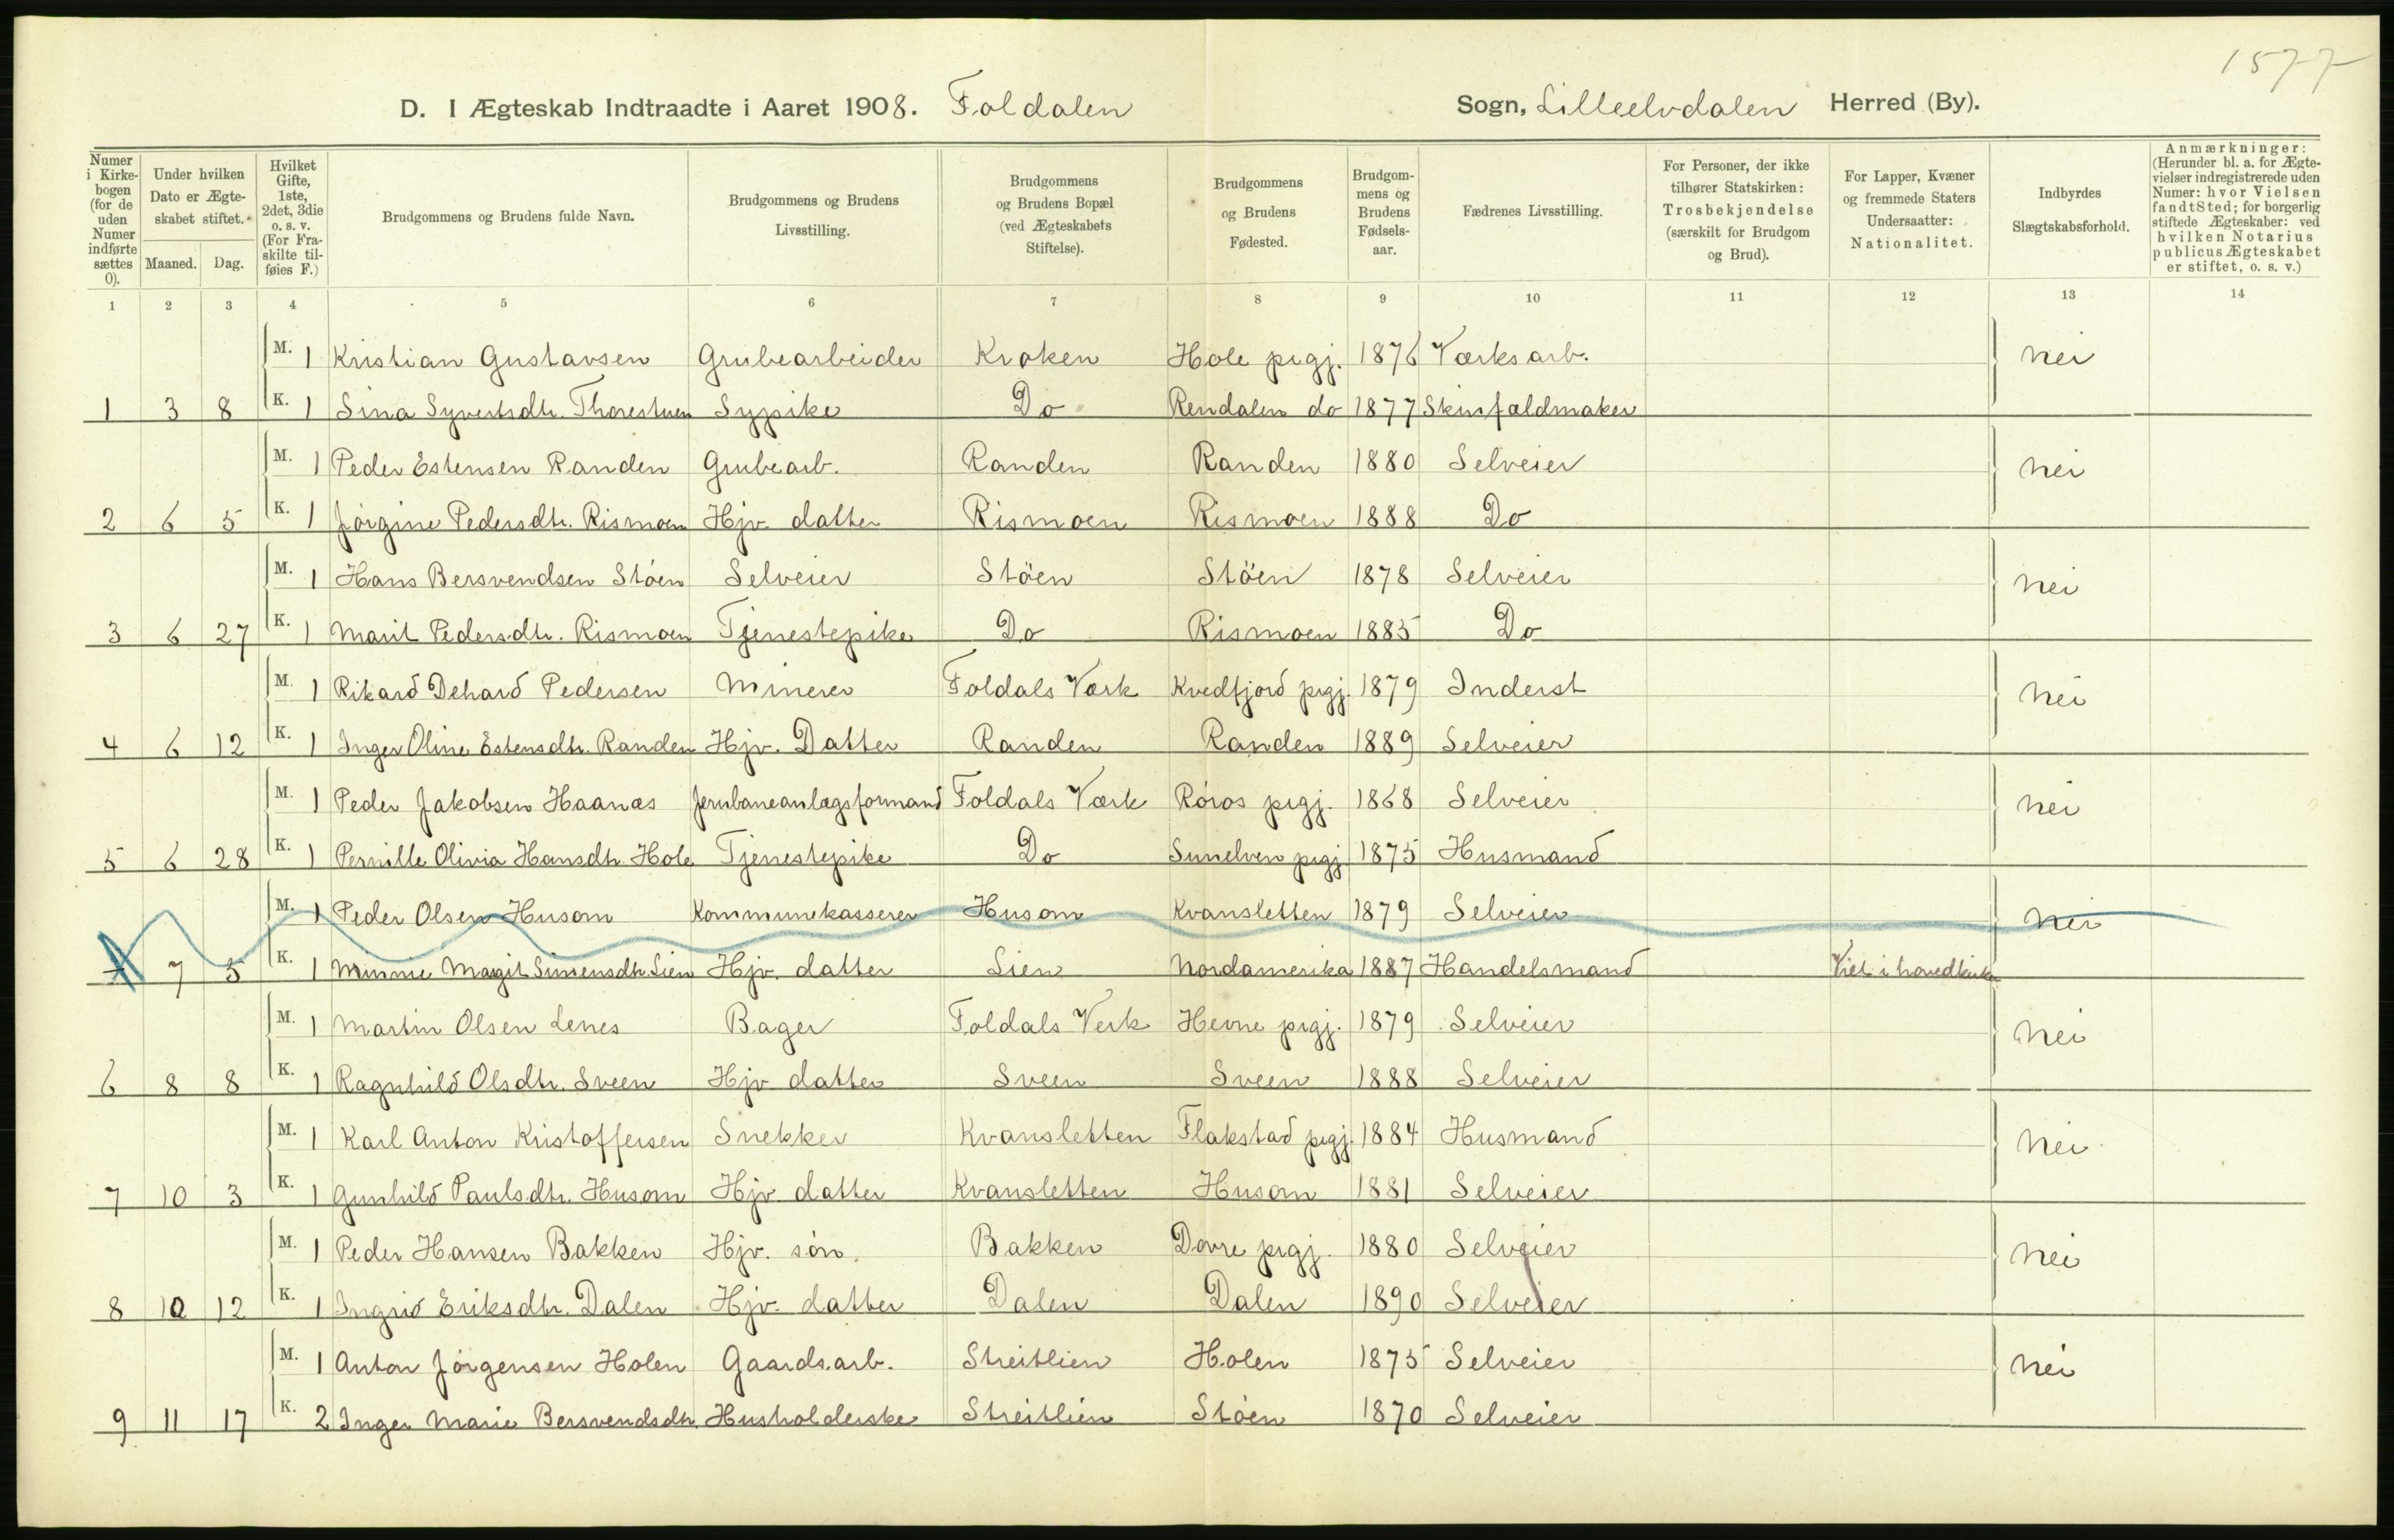 1577
D. I Ægteskab Indtraadte i Aaret 1908. Foldalen Sogn, Lilleelvdalen Herred (By).
Numer i Kirkebogen (for de uden Numer indførte sættes 0).
Under hvilken Dato er Ægteskabet stiftet.
Maaned. Dag.
Hvilket Gifte, 1ste, 2det, 3die o. s. v. (For Fraskilte tilføies F.)
Brudgommens og Brudens fulde Navn.
Brudgommens og Brudens Livsstilling.
Brudgommens og Brudens Bopæl (ved Ægteskabets Stiftelse).
Brudgommens og Brudens Fødested.
Brudgommens og Brudens Fødselsaar.
Fædrenes Livsstilling.
For Personer, der ikke tilhører Statskirken: Trosbekjendelse (særskilt for Brudgom og Brud).
For Lapper, Kvæner og fremmede Staters Undersaatter: Nationalitet.
Indbyrdes Slægtskabsforhold.
Anmærkninger: (Herunder bl. a. for Ægtevielser indregistrerede uden Numer: hvor Vielsen fandt Sted; for borgerlig stiftede Ægteskaber: ved hvilken Notarius publicus Ægteskabet er stiftet, o. s. v.)
1 2 3 4 5 6 7 8 9 10 11 12 13 14
M. 1 Kristian Gustavsen Grubearbeider Kroken Hole prgj. 1876 Værksarb. nei
1 3 8 K. 1 Sina Syvertsdtr. Thorestuen Sypike Do Rendalen do 1877 Skinfældmaker
M. 1 Peder Estensen Randen Grubearb. Randen Randen 1880 Selveier nei
2 6 5 K. 1 Jörgine Pedersdtr. Rismoen Hjv. datter Rismoen Rismoen 1888 Do
M. 1 Hans Bersvendsen Stöen Selveier Stöen Stöen 1878 Selveier nei
3 6 27 K. 1 Marit Pedersdtr. Rismoen Tjenestepike Do Rismoen 1885 Do
M. 1 Rikard Dehard Pedersen Minerer Foldals Værk Kvedfjord prgj. 1879 Inderst nei
4 6 12 K. 1 Inger Oline Estensdtr. Randen Hjv. Datter Randen Randen 1889 Selveier
M. 1 Peder Jakobsen Haanæs Jernbaneanlægsformand Foldals Værk Röros prgj. 1868 Selveier nei
5 6 28 K. 1 Pernille Olivia Hansdtr. Hole Tjenestepike Do Sunelven prgj. 1875 Husmand
M. 1 Peder Olsen Husom Kommunekasserer Husom Kvansletten 1879 Selveier nei
7 5 K. 1 Minnie Margit Simensdtr. Lien Hjv. datter Lien Nordamerika 1887 Handelsmand Viet i hovedkirken
M. 1 Martin Olsen Lenes Bager Foldals Verk Hevne prgj. 1879 Selveier nei
6 8 8 K. 1 Ragnhild Olsdtr. Sveen Hjv datter Sveen Sveen 1888 Selveier
M. 1 Karl Anton Kristoffersen Snekker Kvansletten Flakstad prgj. 1884 Husmand nei
7 10 3 K. 1 Gunhild Paulsdtr. Husom Hjv. datter Kvansletten Husom 1881 Selveier
M. 1 Peder Hansen Bakken Hjv. sön. Bakken Dovre prgj. 1880 Selveier nei
8 10 12 K. 1 Ingrid Eriksdtr. Dalen Hjv. datter Dalen Dalen 1890 Selveier
M. 1 Anton Jörgensen Holen Gaardsarb. Streitlien Holen 1875 Selveier nei
9 11 17 K. 2 Inger Marie Bersvendsdtr. Husholderske Streitlien Stöen 1870 Selveier